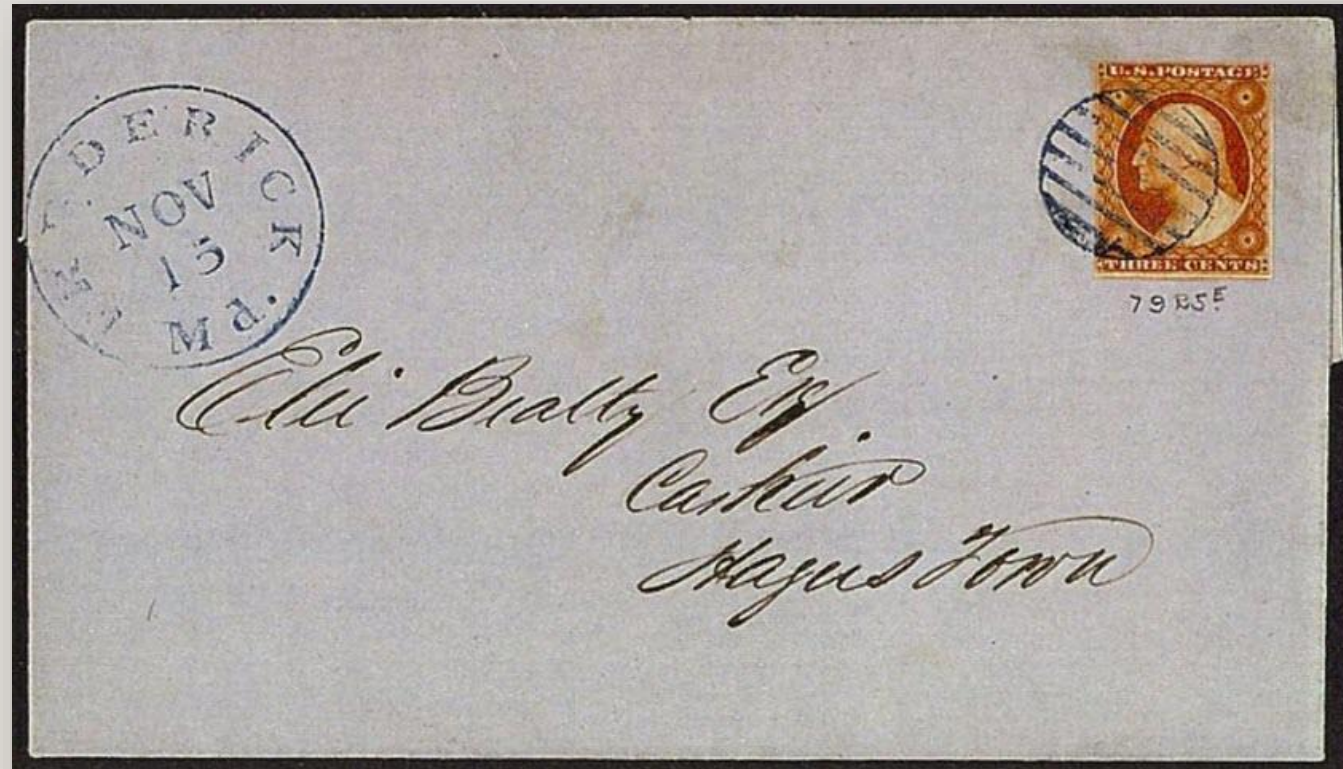 FREDERICK
NOV
15
Md.
U.S. POSTAGE
THREE CENTS
79 R5E
Eli Bealty Esq
Cashier
Hagers Town